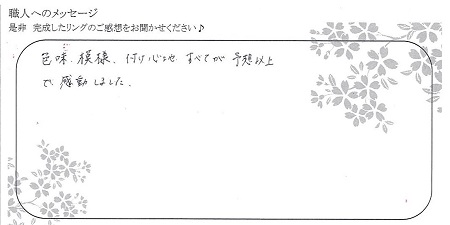 職人へのメッセージ
是非 完成したリングのご感想をお聞かせください♪
色味、模様、付け心地、すべてが予想以上
で、感動しました。